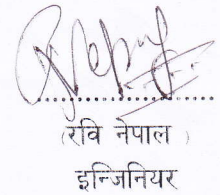 (रवि नेपाल )
इन्जिनियर